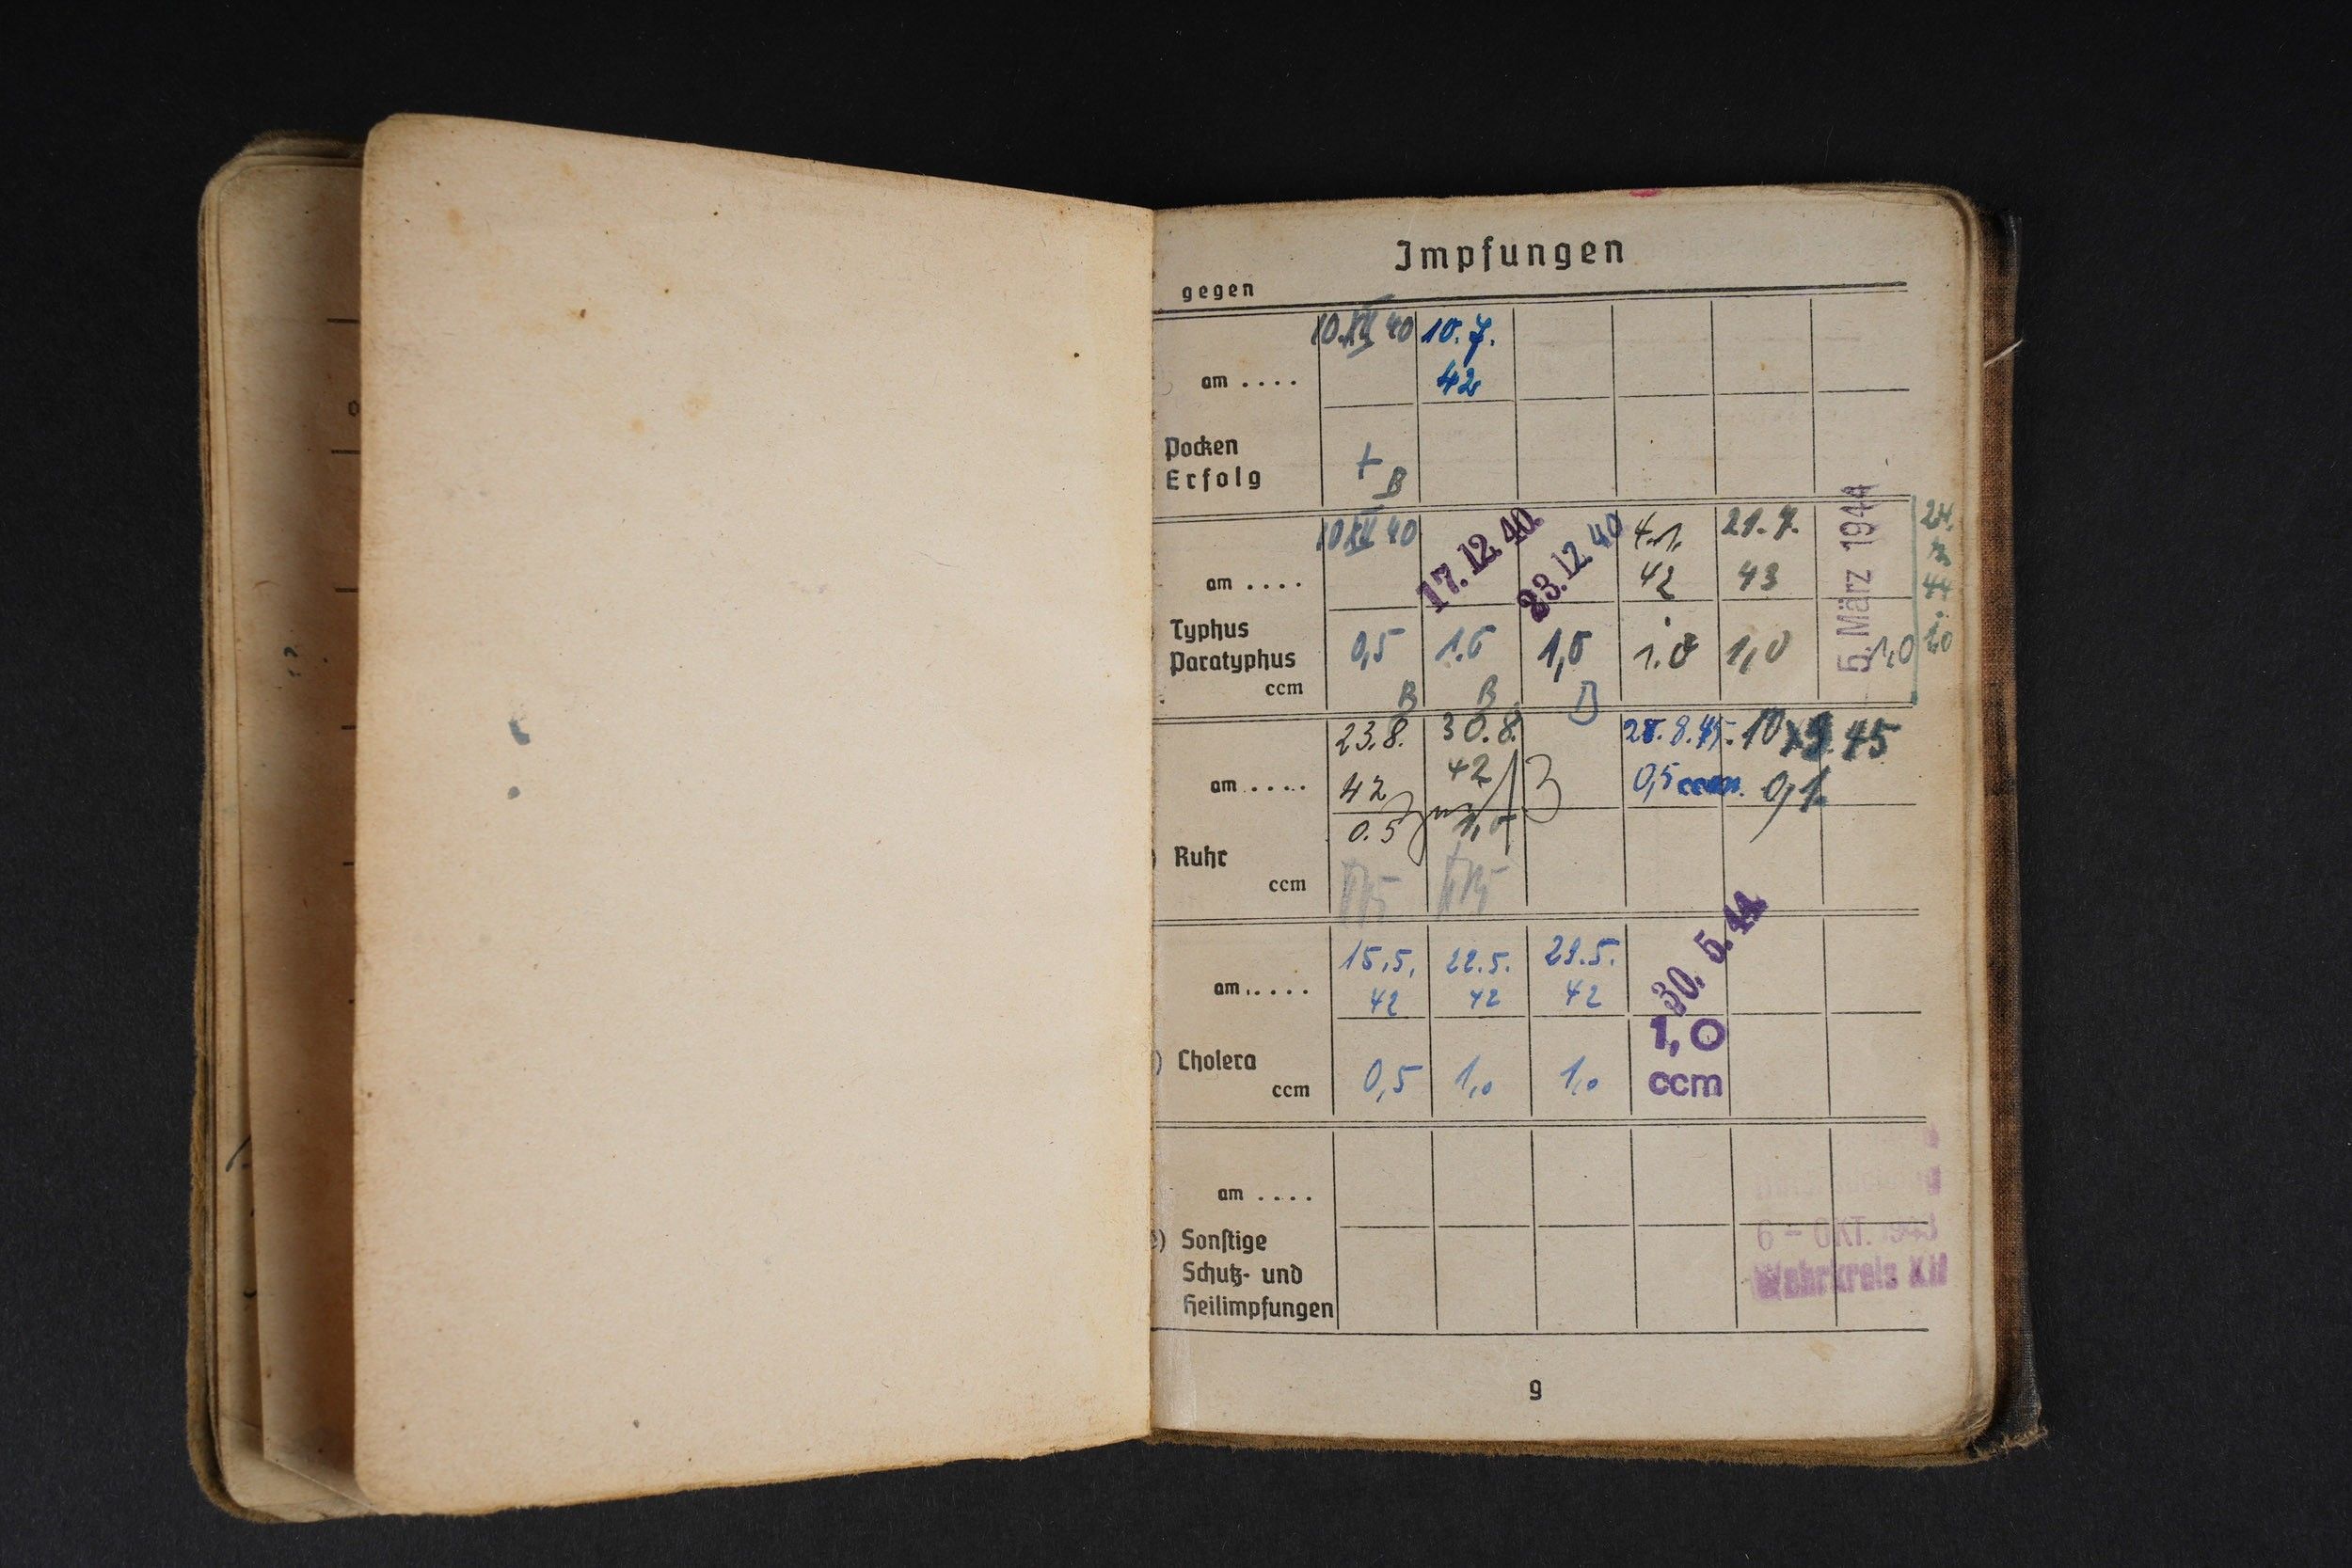 Impfungen
gegen
10.XII 40 10.7.
42
am ....
Pocken
Erfolg
+ B
10 XII 40 17. 12. 40. 23. 12. 40 4.1. 42 21.7. 43 5. März 1944 24.
44
am ....
Typhus
Paratyphus
ccm
0,5 1.0 1,0 1.0 1,0 1,0 1,0
B B B
23.8. 30.8. 28.8.45. 10 9 45
am .....
42 42 0,5 ccm. 0,1
0.5 1,0
Ruhr
ccm
15.5. 22.5. 29.5. 30. 5. 44
am .....
42 42 42
) Cholera
ccm
0,5 1,0 1,0 1,0
ccm
am ....
e) Sonstige
Schutz- und
Heilimpfungen
6 - OKT. 1943
Wehrkreis XII
9